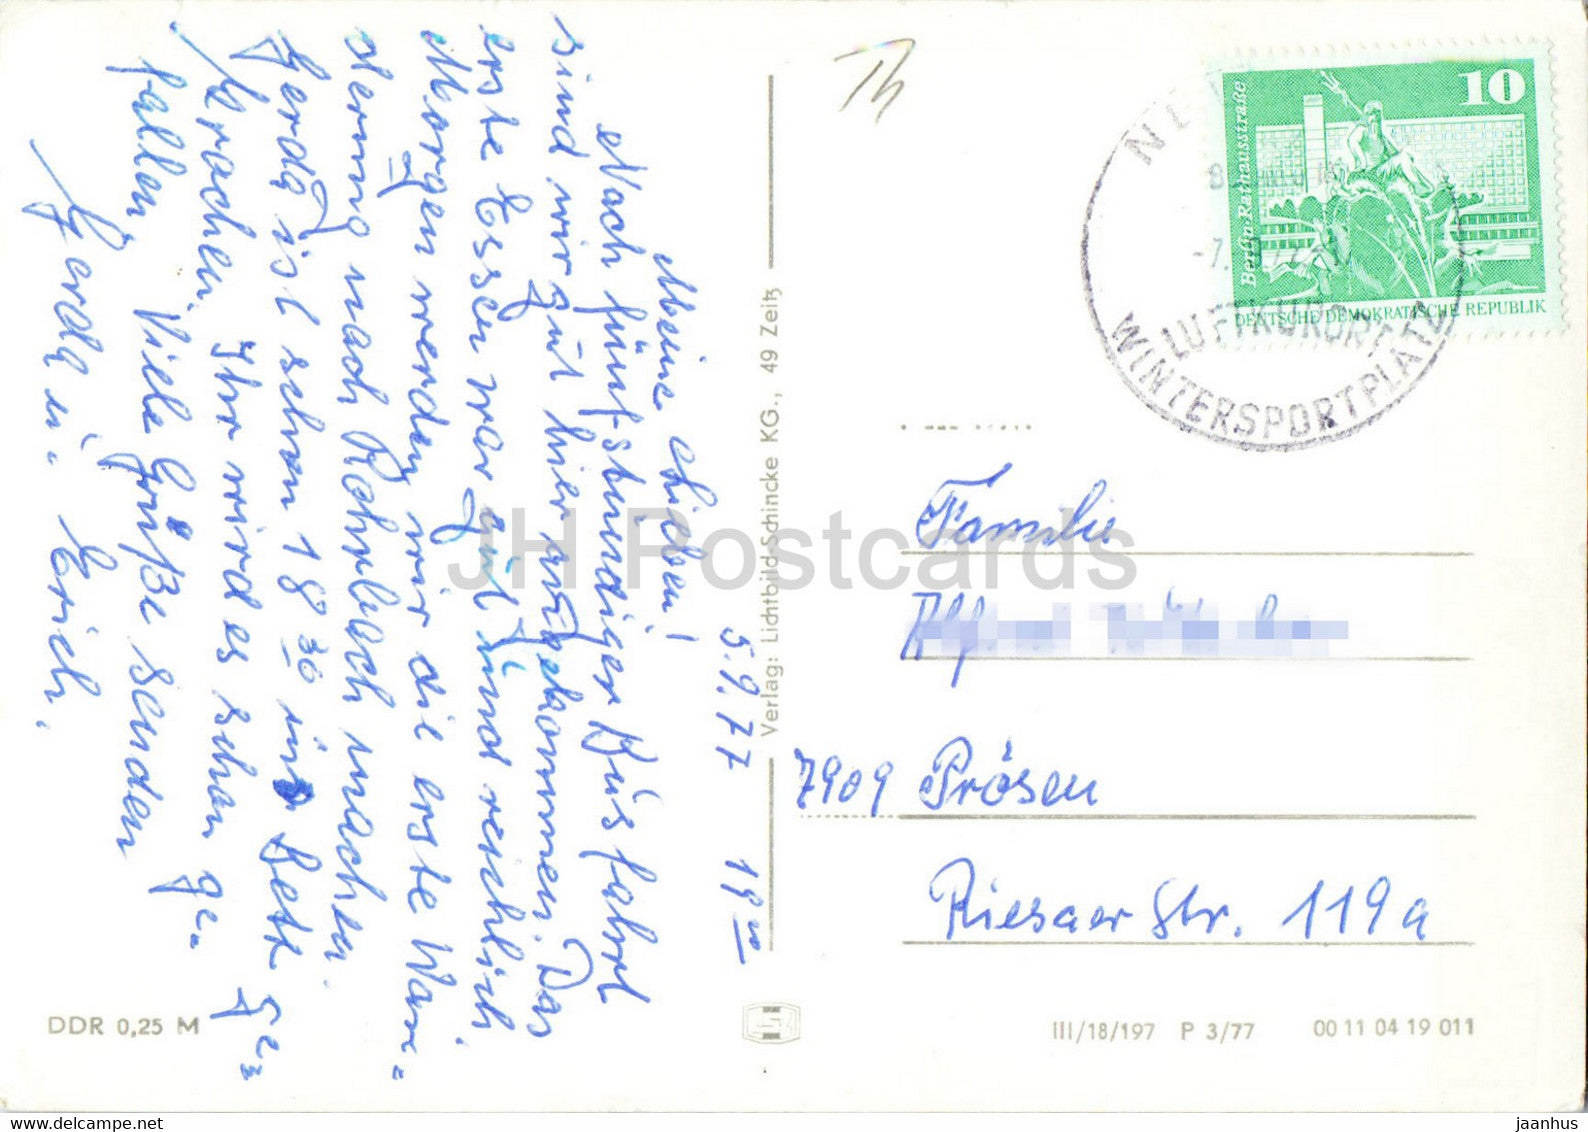 5.9.77 19⁰⁰
Meine Lieben!
Nach fünfstündiger Busfahrt
sind wir gut hier angekommen. Das
erste Essen war gut und reichlich.
Morgen werden wir die erste Wan-
derung nach Rohrbach machen.
Gerda ist schon 18³⁰ ins Bett ge-
krochen. Ihr wird es schon ge-
fallen. Viele Grüße senden
Gerda u. Erich.
Th
Verlag: Lichtbild-Schincke KG., 49 Zeitz
DDR 0,25 M
10
Berlin·Rathausstraße
DEUTSCHE DEMOKRATISCHE REPUBLIK
LUFTKURORT
WINTERSPORTPLATZ
Familie
Alfred
7909 Prösen
Riesaer Str. 119a
III/18/197 P 3/77 00 11 04 19 011
JH Postcards
jaanhus